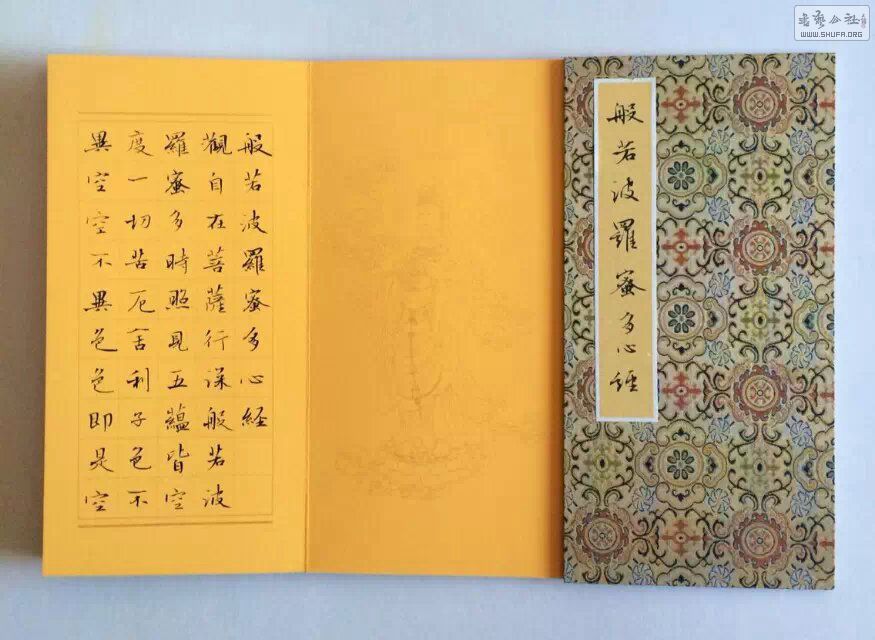 般若波羅蜜多心經
般若波羅蜜多心經
觀自在菩薩行深般若波
羅蜜多時照見五蘊皆空
度一切苦厄舍利子色不
異空空不異色色即是空
書藝公社
WWW.SHUFA.ORG